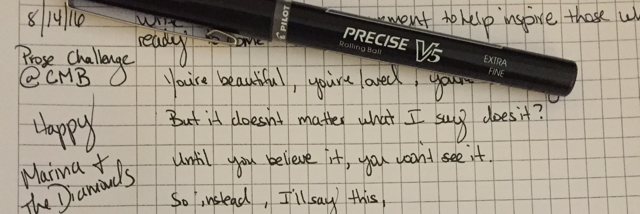 8/14/16
ment to help inspire those
ready
PILOT
PRECISE V5
Rolling Ball
EXTRA
FINE
Prose Challenge
@ CMB
You're beautiful, you're loved,
Happy
But it doesn't matter what I say does it?
Marina +
The Diamonds
Until you believe it, you won't see it.
So instead, I'll say this,